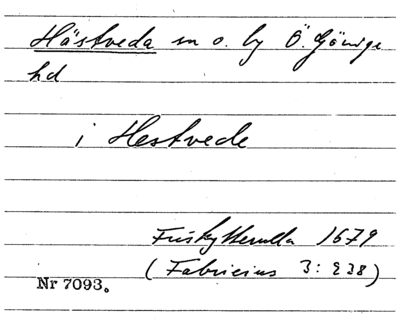 Hästveda sn o. by Ö. Göinge
hd
i Hestvede
Friskytterulla 1679
(Fabricius 3: 238)
Nr 7093.